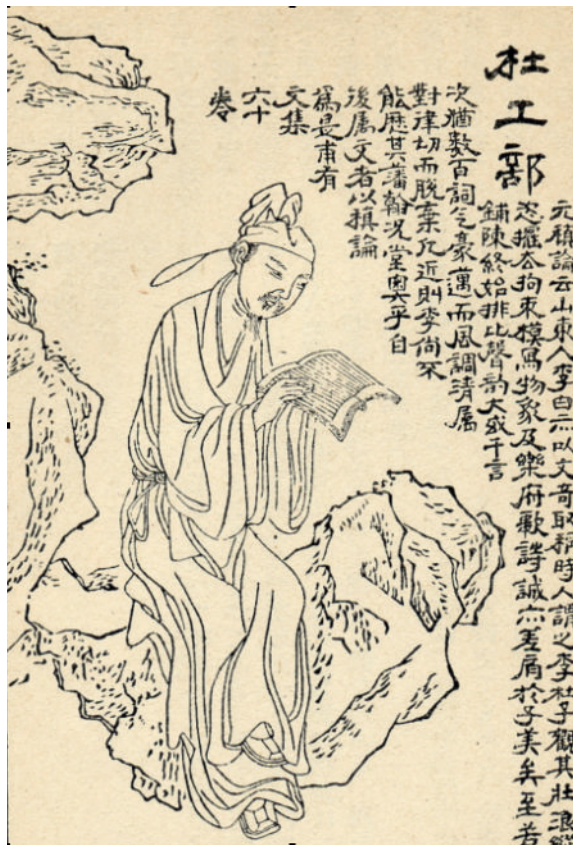 杜工部
元稹論云山東人李白亦以文奇取稱時人謂之李杜予觀其壯浪縱
恣擺去拘束模寫物象及樂府歌詩誠亦差肩於子美矣至若
鋪陳終始排比聲韵大或千言
次猶數百詞气豪邁而風調清属
對律切而脫棄凡近則李尚不
能歷其藩翰况堂奧乎自
後属文者以稹論
為是甫有
文集
六十
卷